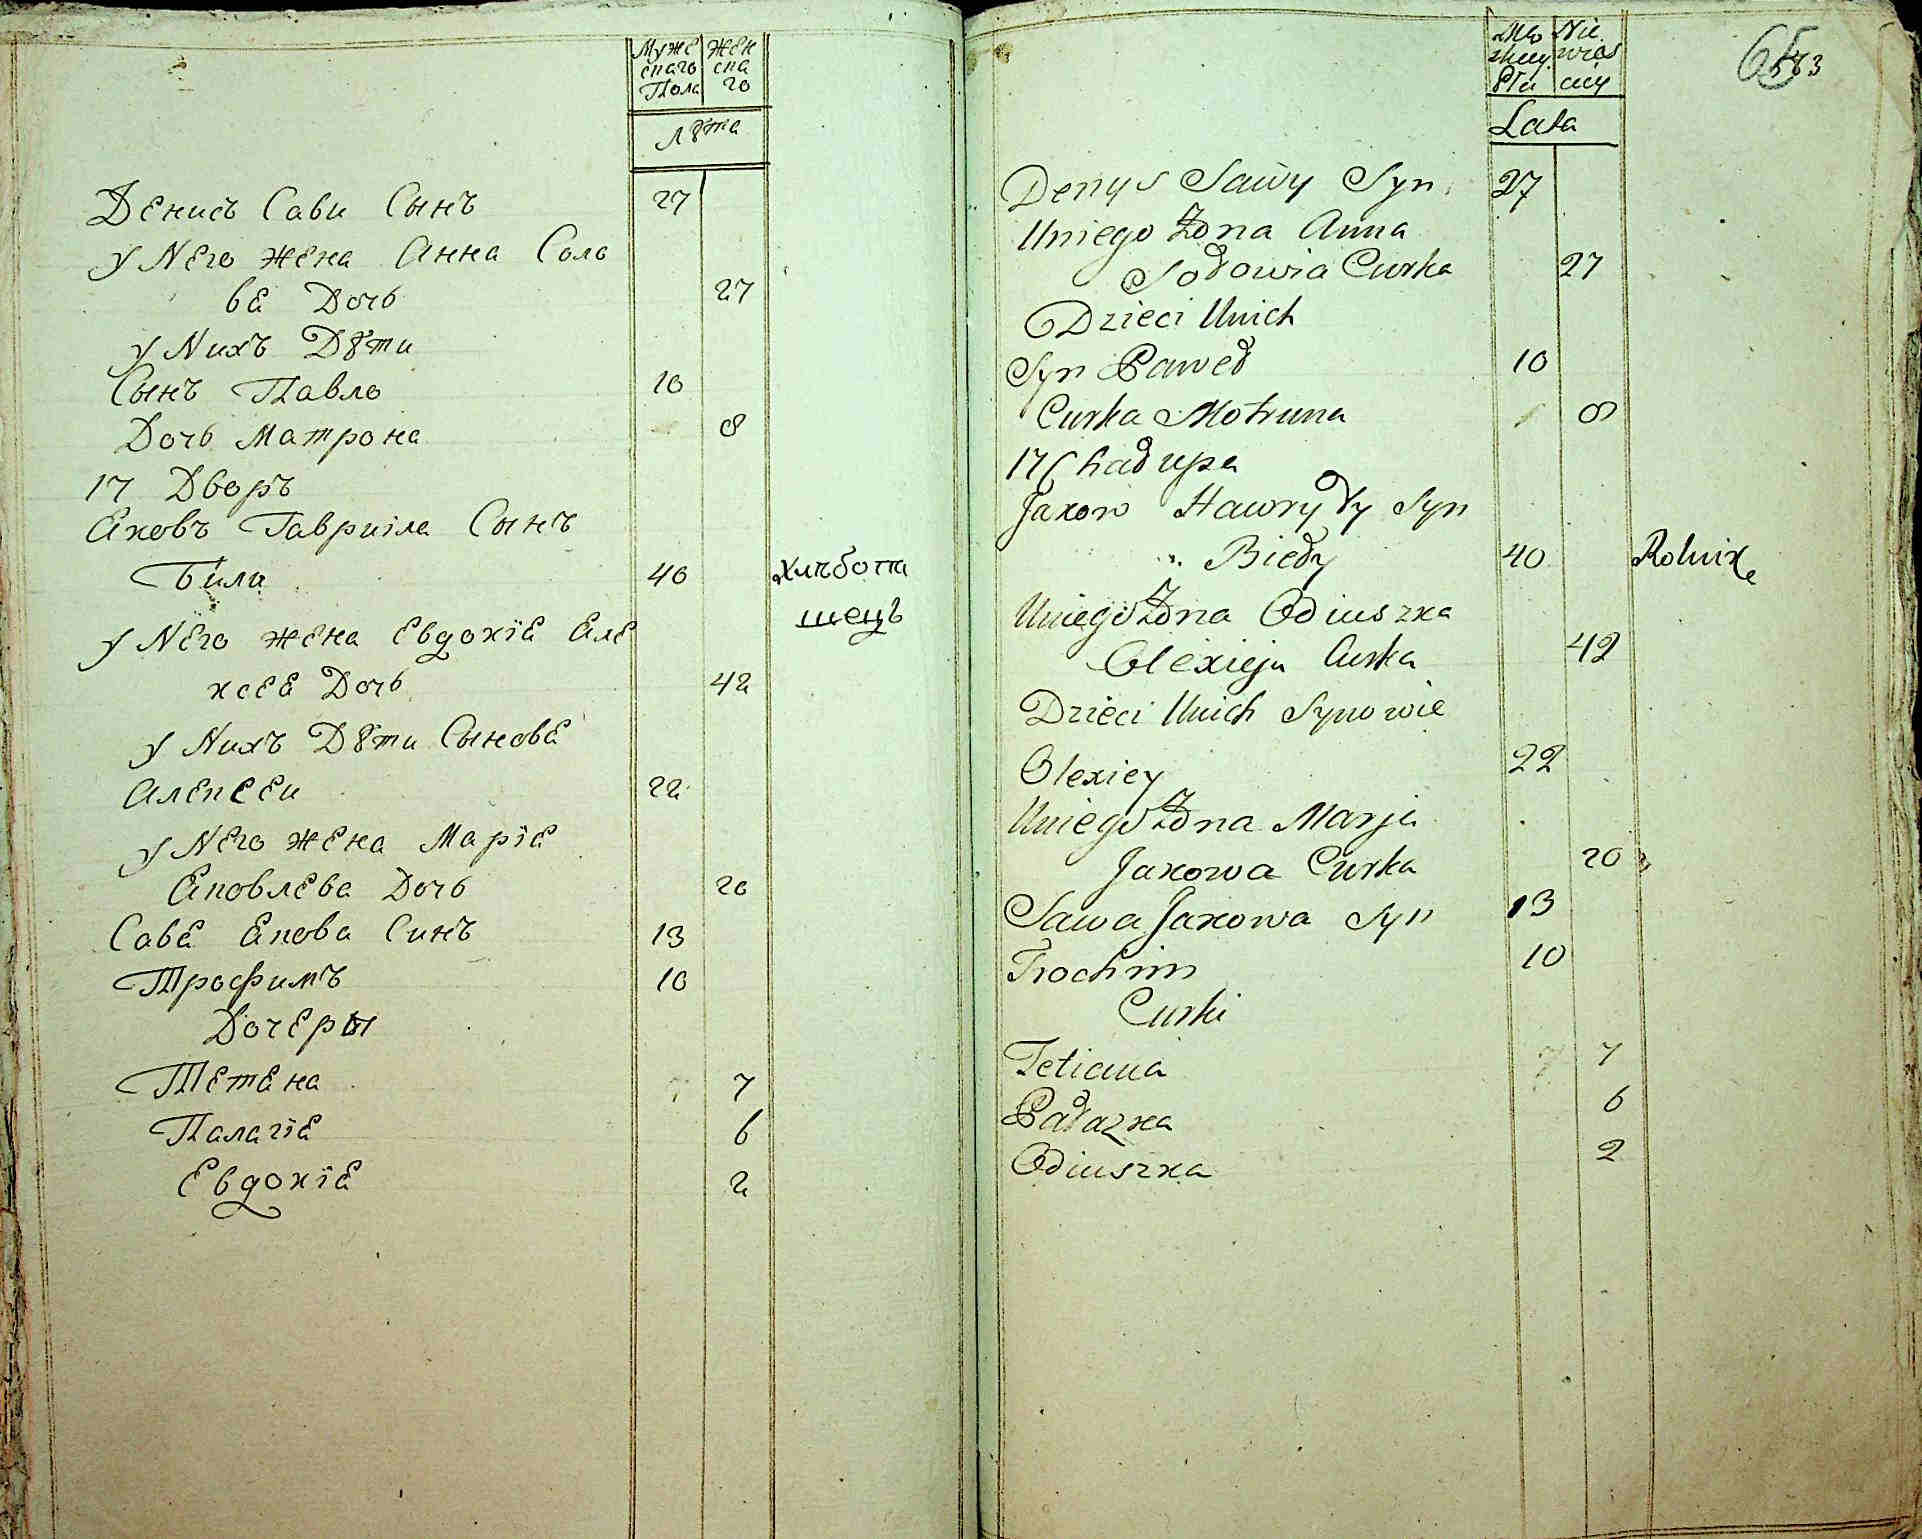 Муже Жен
скаго ска
Пола го
Лѣта
Денисъ Сави Сынъ 27
у Него жена Анна Соло
ва Дочь 27
у Нихъ Дѣти
Сынъ Павло 10
Дочь Матрона 8
17 Дворъ
Яковъ Гавриіла Сынъ
Била 40 Хлѣбопа
шецъ
у Него жена Евдокія Але
ксея Дочь 42
у Нихъ Дѣти Сынове
Алексеи 22
у Него жена Марія
Яковлева Дочь 20
Сава Якова Синъ 13
Трофимъ 10
Дочеры
Тетяна 7
Палагія 6
Евдокія 2
65
Męs Nie
kiey wias
Płci ciey
Lata
Denys Sawy Syn 27
Uniego Żona Anna
Sołowia Curka 27
Dzieci Unich
Syn Paweł 10
Curka Motruna 8
17 Chałupa
Jakow Hawryły Syn
Biły 40 Rolnik
Uniego Żona Odiuszka
Olexieja Curka 42
Dzieci Unich Synowie
Olexiey 22
Uniego Żona Marja
Jakowa Curka 20
Sawa Jakowa Syn 13
Trochim 10
Curki
Tetiana 7
Pałazka 6
Odiuszka 2